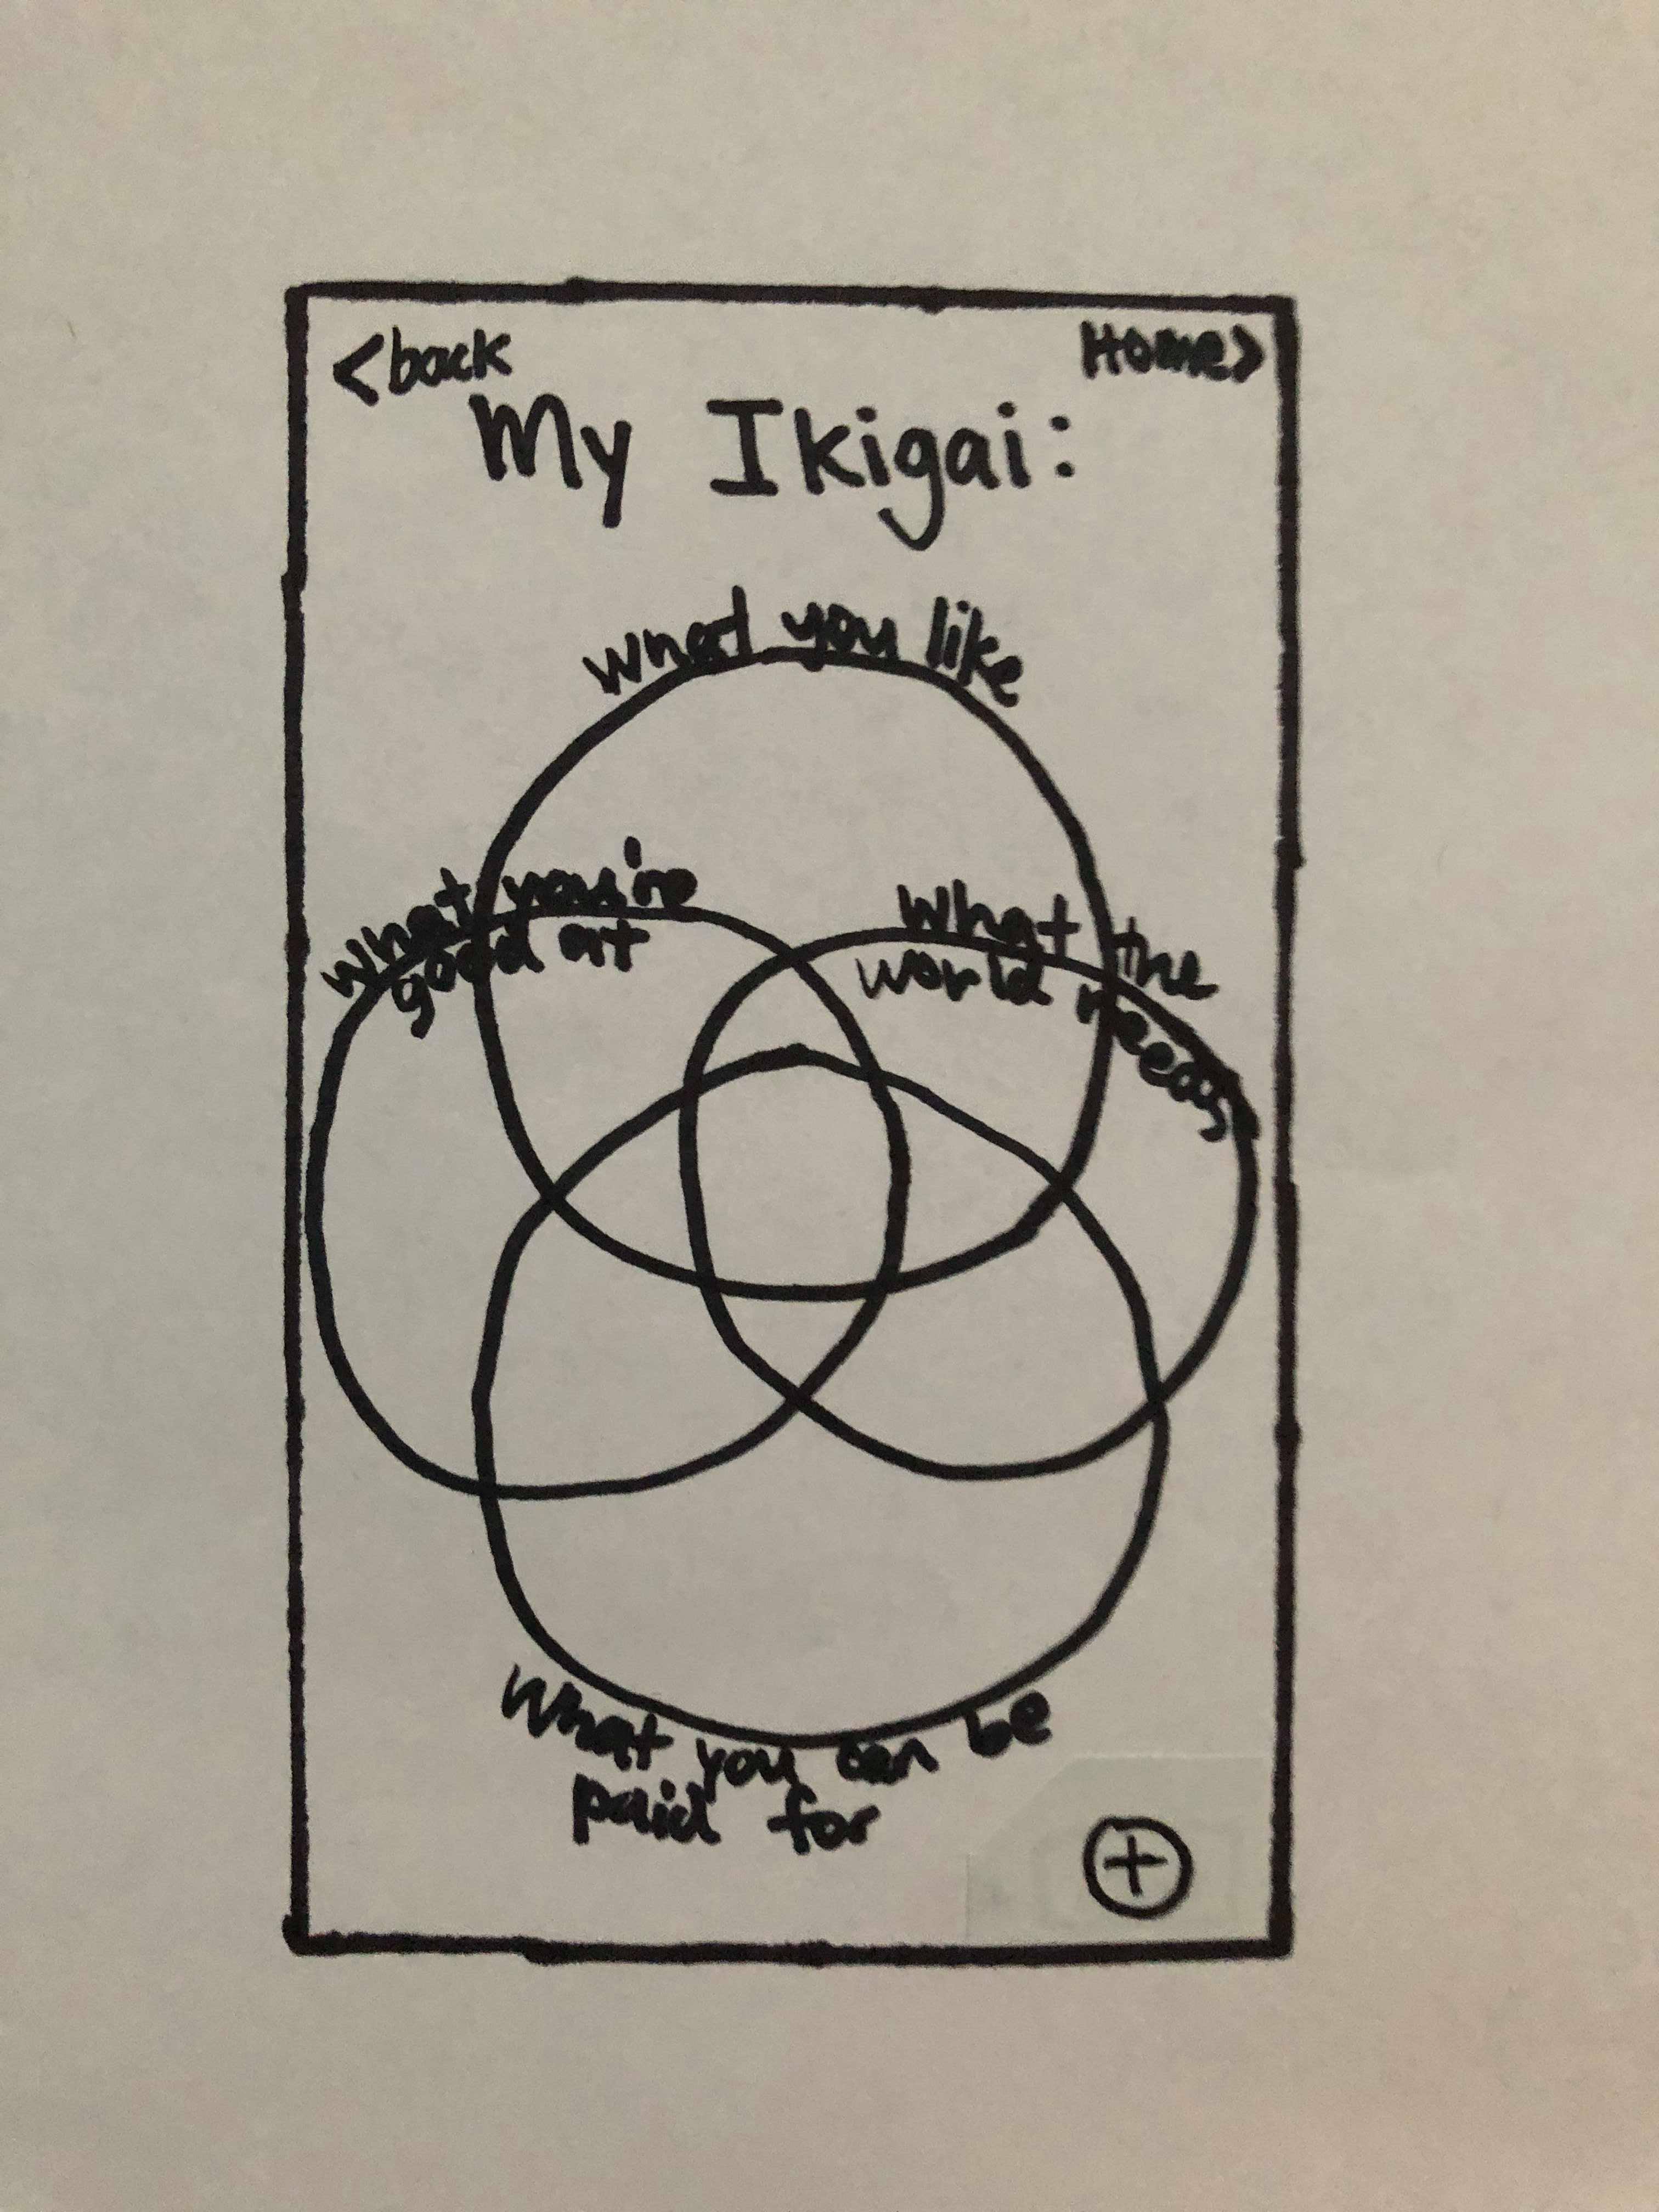 <back
Home>
My Ikigai:
what you like
what you're
good at
what the
world needs
what you can be
paid for
+